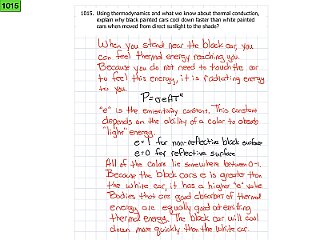 1015
1015. Using thermodynamics and what we know about thermal conduction,
explain why black painted cars cool down faster than white painted
cars when moved from direct sunlight to the shade?
When you stand near the black car, you
can feel thermal energy reaching you.
Because you do not need to touch the car
to feel this energy, it is radiating energy
to you.
P=σeAT⁴
"e" is the emmentivity constant. This constant
depends on the ability of a color to absorb
"light" energy.
e=1 for non-reflective black surface
e=0 for reflective surface
All of the colors lie somewhere between 0-1.
Because the black cars e is greater than
the white car, it has a higher "e" value.
Bodies that are good absorber of thermal
energy are equally good at emitting
thermal energy. The black car will cool
down more quickly than the white car.